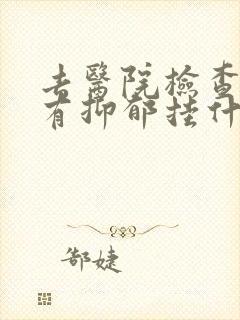 去醫院檢查
有抑郁挂什
郜婕